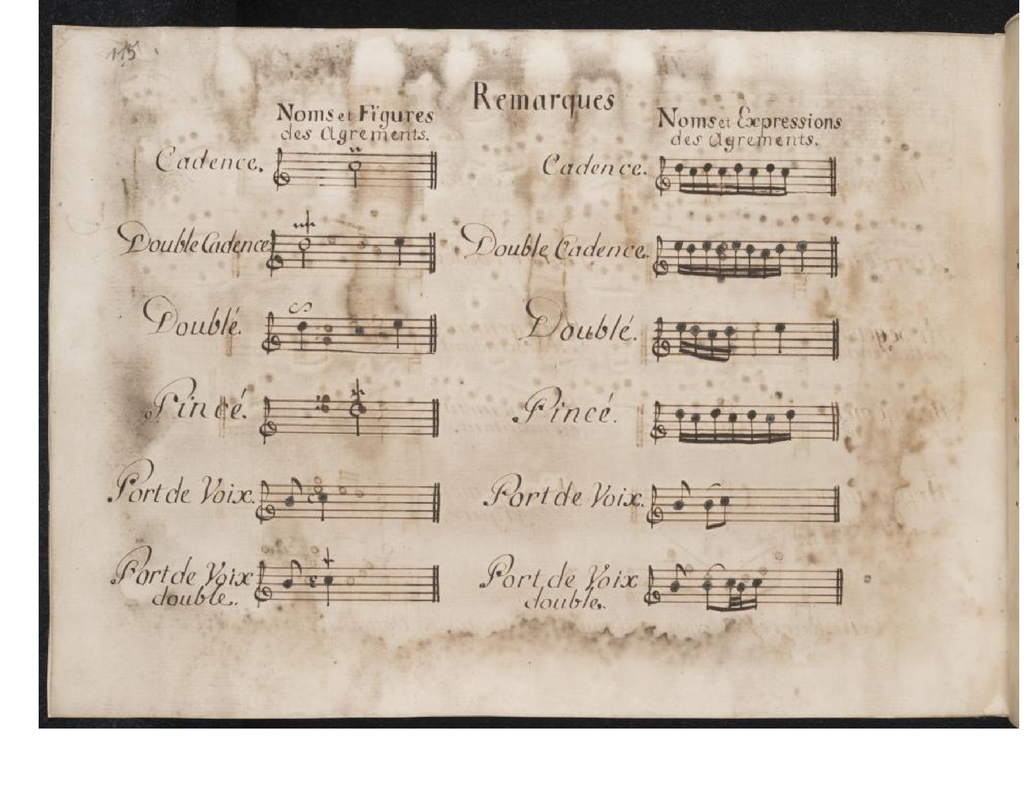 115
Remarques
Noms et Figures
des Agrements.
Noms et Expressions
des Agrements.
Cadence.
Cadence.
Double Cadence
Double Cadence.
Doublé.
Doublé.
Pincé.
Pincé.
Port de Voix.
Port de Voix.
Port de Voix
double.
Port de Voix
double.